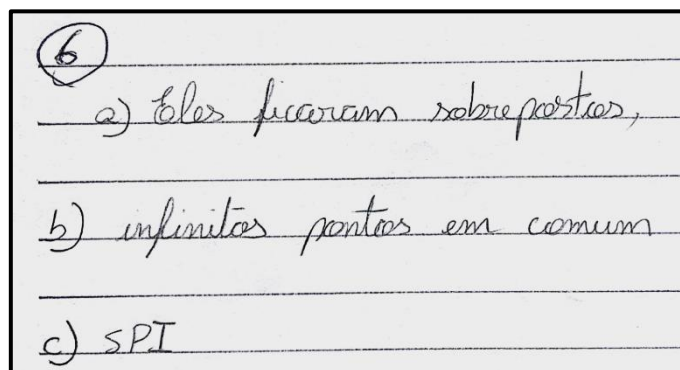 6
a) Eles ficaram sobrepostos,
b) infinitos pontos em comum
c) SPI